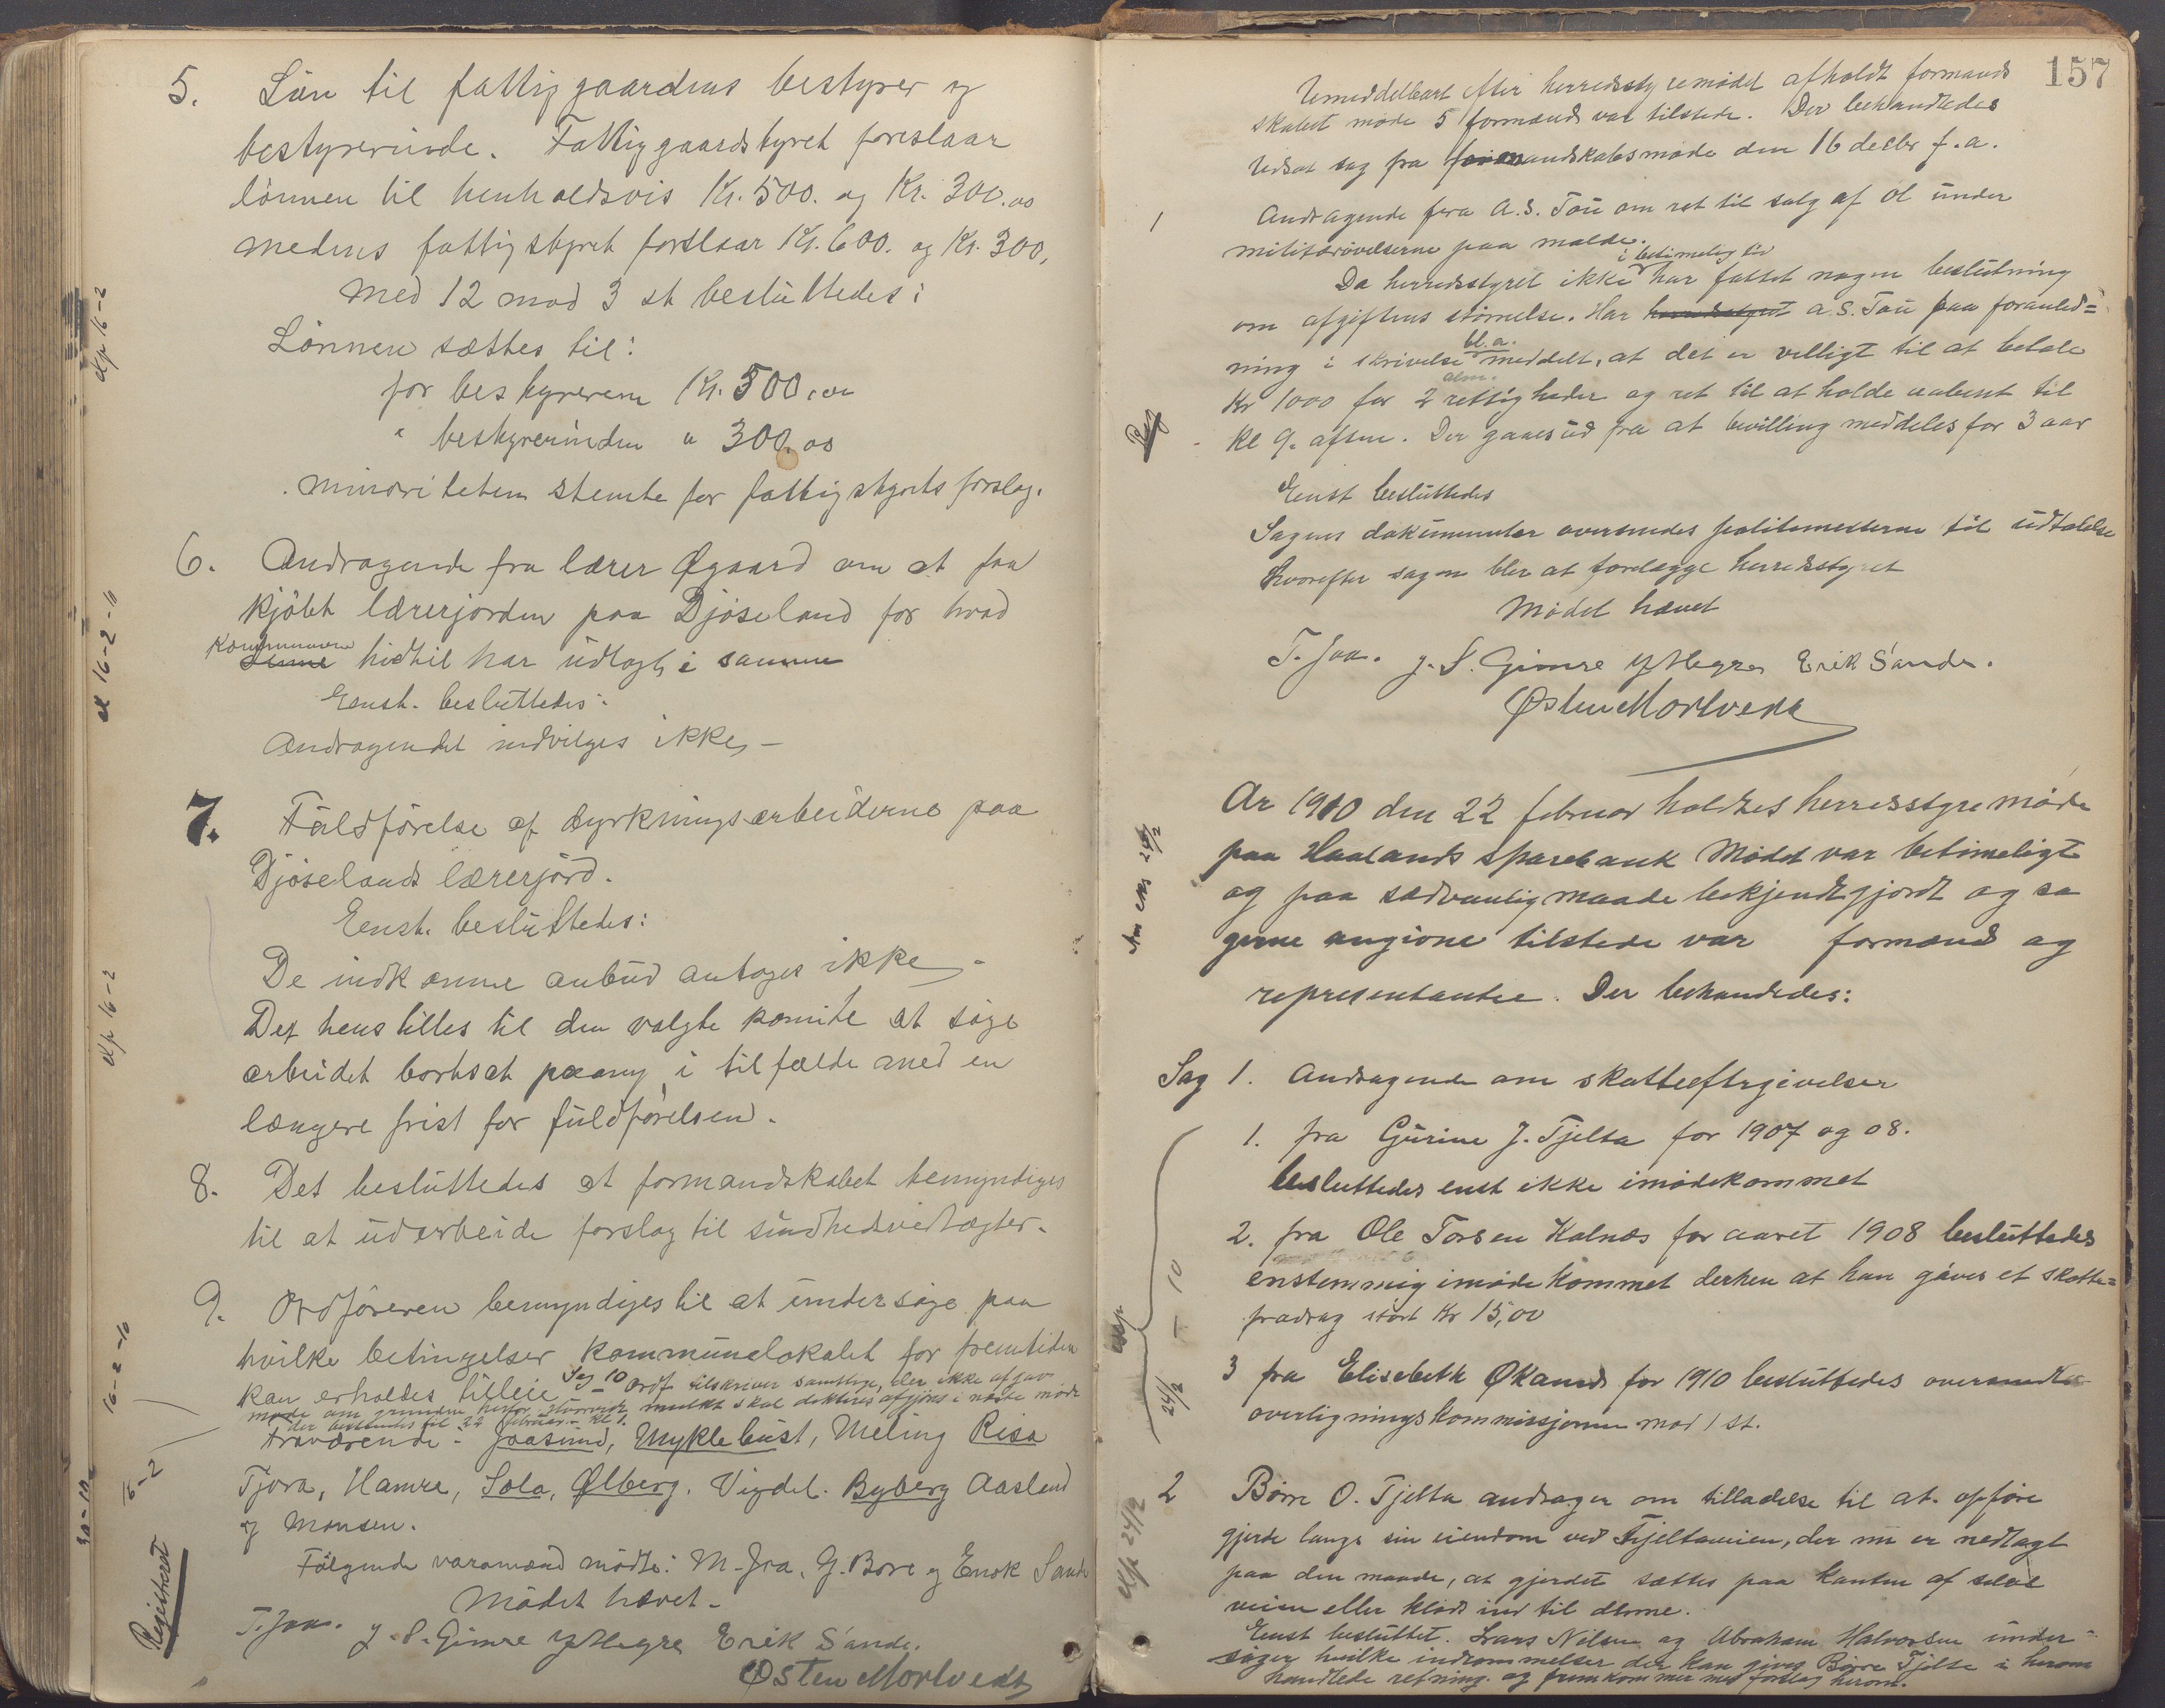 5. Løn til fattiggaardens bestyrer og
bestyrerinde. Fattiggaardstyret foreslaar
lønnen til henholdsvis Kr. 500. og Kr. 300.00
medens fattigstyret forslaar Kr. 600. og Kr. 300,
Med 12 mod 3 st besluttedes:
Lønnen sættes til:
for bestyreren Kr. 500,00
" bestyrerinden " 300.00
Minoriteten stemte for fattigstyrets forslag.
6. Andragende fra lærer Øgaard om at faa
kjøbt lærerjorden paa Djøseland for hvad
Kommunen
hidtil har udlagt i samme
Eenst. besluttedes:
Andragendet indvilges ikke, –
7. Fuldførelse af dyrkningsarbeiderne paa
Djøselands lærerjord.
Eenst. besluttedes:
De indkomne anbud antages ikke, –
Det henstilles til den valgte komite at søge
arbeidet bortsat paany, i tilfælde med en
længere frist for fuldførelsen.
8. Det besluttedes at formandskabet bemyndiges
til at udarbeide forslag til sundhedsvedtægter.
9. Ordføreren bemyndiges til at undersøge paa
hvilke betingelser kommunelokalet for fremtiden
kan erholdes tilleie Sag 10 Ordf. tilskriver samtlige, der ikke afgav
møde om grunden herfor, hvorvidt mulkt skal dikteres afgjøres i næste møde
der bestemtes til 22 februar kl 1.
Fraværende: Joasund, Myklebust, Meling Risa
Tjora, Hamre, Sola, Ølberg. Vigdel. Byberg Aasland
og Monsen.
Følgende varamænd mødte: M. Joa, G. Bore og Enok Sande
Mødet hævet –
T. Joa. J. S. Gimre Y Hegre Erik Sande.
Østen Mortvedt
exp 16-2
ex 16-2-10
exp 16-2
16-2-10
Registrert
157
Umiddelbart efter herredsstyremødet afholdt formand
skabet møde 5 formænd var tilstede. Der behandledes
Udsat sag fra formandskabsmøde den 16 decbr f.a.
1 Andragende fra A.S. Tou om ret til salg af øl under
militærøvelserne paa malde.
i betimelig tid
Da herredsstyret ikke har fattet nogen beslutning
om afgiftens størrelse. Har herredsstyret A.S. Tou paa foranled=
bl.a.
ning i skrivelse meddelt, at det er villigt til at betale
alm.
Kr 1000 for 2 rettigheder og ret til at holde aabent til
Kl 9. aften. Der gaaes ud fra at bevilling meddeles for 3 aar
Reg
Eenst besluttedes
Sagens dokumenter oversendes politimesteren til udtalelse
hvorefter sagen bler at forelægge herredsstyret
Mødet hævet
T. Joa. J. S. Gimre Y Hegre Erik Sande.
Østen Mortvedt
Ar 1910 den 22 februar holdtes herredsstyremøde
paa Haalands sparebank Mødet var betimeligt
og paa sædvanlig maade bekjendtgjordt og sa
gerne angivne tilstede var formænd og
representanter. Der behandledes:
Sag 1. Andragende om skatteeftergivelser
1. fra Gurine J. Tjelta for 1907 og 08.
besluttedes enst ikke imødekommet
2. fra Ole Torsen Kalnæs for aaret 1908 besluttedes
enstemmig imødekommet derhen at han gives et skatte=
fradrag stort Kr 15,00
3 fra Elisebeth Økland for 1910 besluttedes oversendt
overligningskommissjonen mod 1 st.
24/2 – 10
2 Børre O. Tjelta andrager om tilladelse til at opføre
gjerde langs sin eiendom ved Tjeltaveien, der nu er nedlagt
paa den maade, at gjerdet sættes paa kanten af selve
veien eller klods ind til denne.
Exp 24/2
Eenst besluttet. Lars Nilsen og Abraham Halvorsen under-
søger hvilke indrømmelser der kan gives Børre Tjelta i herom
handlede retning. og fremkommer med forslag herom.